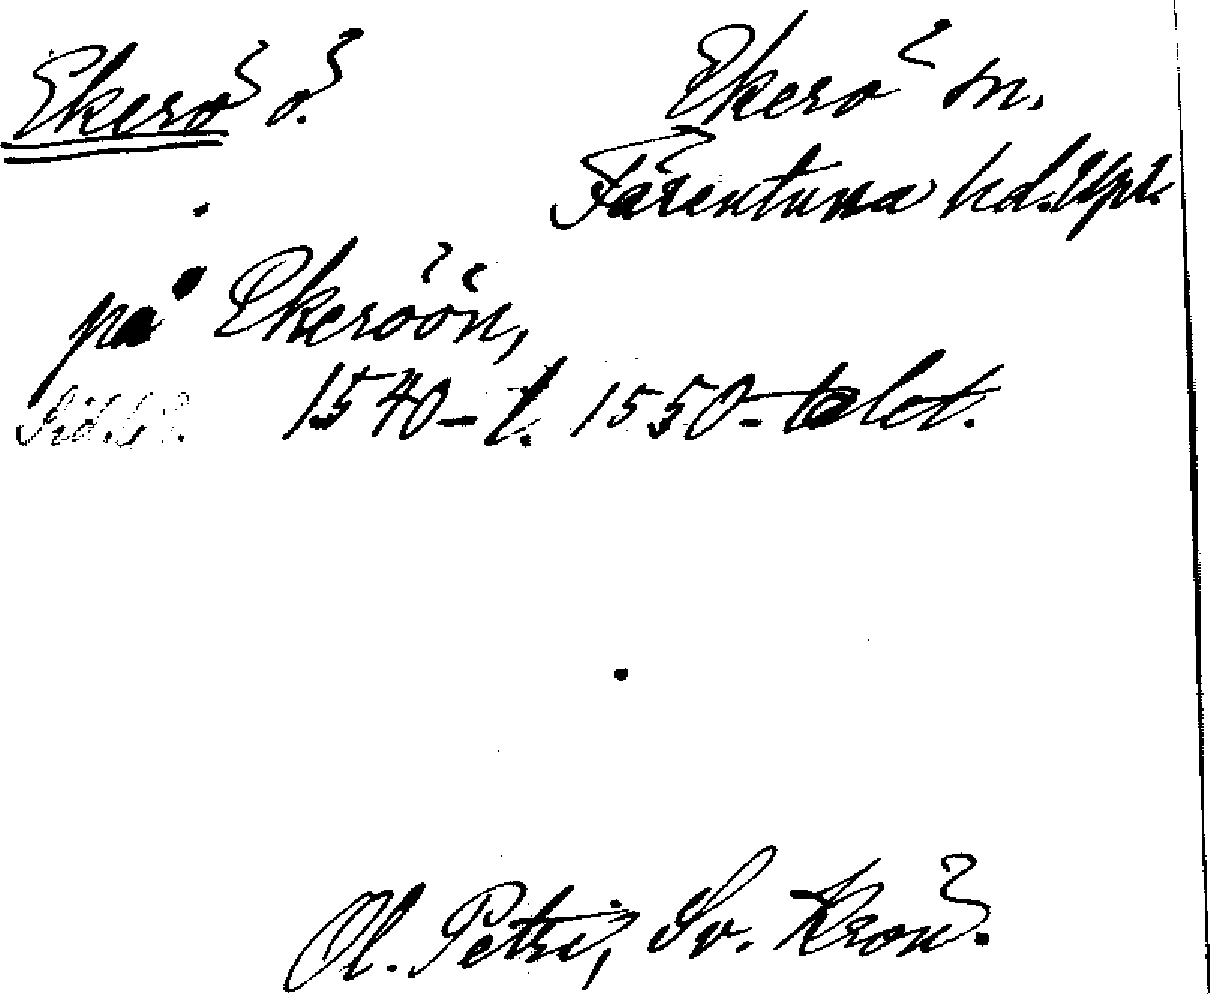 Ekerö ö.
Ekerö sn.
Färentuna hd. Upl.
på Ekeröön,
Sid. 1540-t. 1550-talet.
Ol. Petri, Sv. Krön.